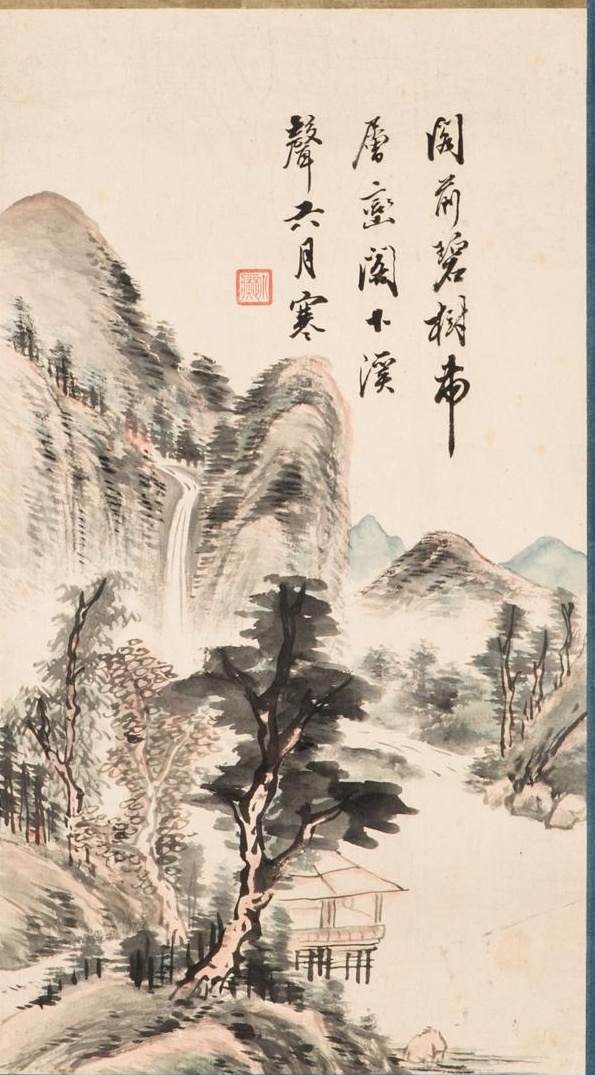 閣前碧樹帶
層巒閣下溪
聲六月寒